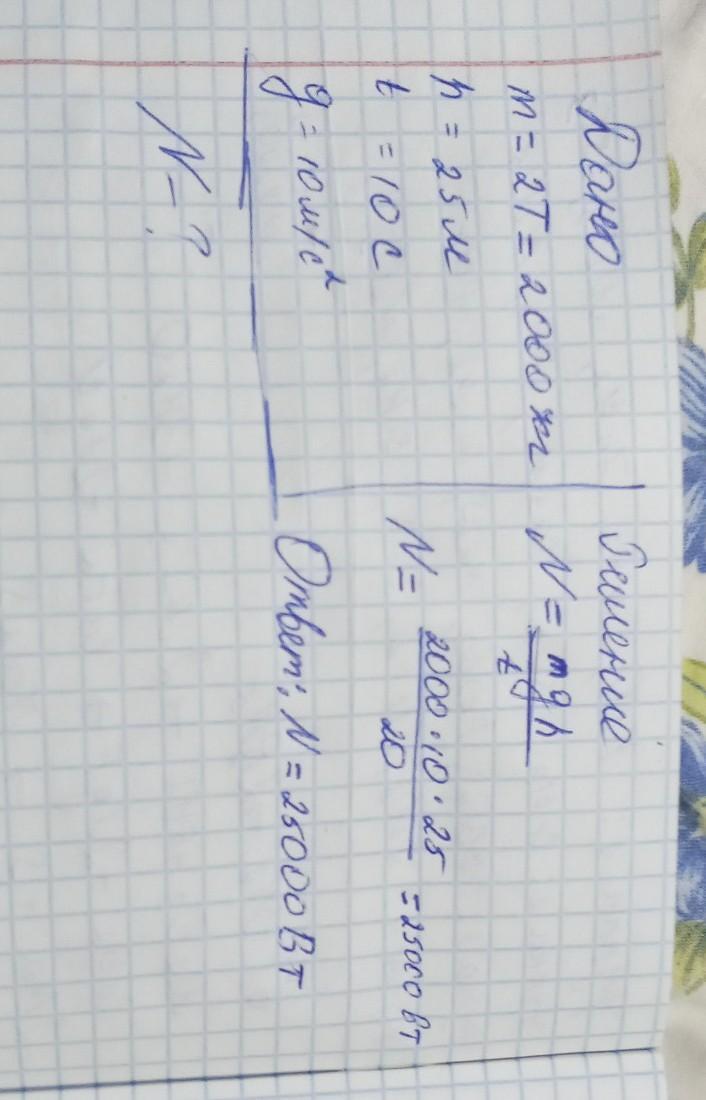 Дано
m = 2T = 2000 кг
h = 25 м
t = 10 с
g = 10 м/с²
N - ?
Решение
N = mgh
t
N = 2000 · 10 · 25 = 25000 Вт
20
Ответ; N = 25000 Вт